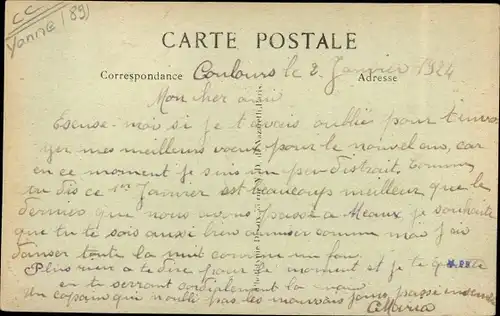 CC
Yonne (89)
CARTE POSTALE
Correspondance Coulours le 2 Janvier 1924 Adresse
Mon cher ami
Escuse-moi si je t'avais oublié pour t'envo
yer mes meilleurs vœux pour le nouvel an, car
en ce moment je suis un peu distrait. Comme
tu dis ce 1er Janvier est beaucoup meilleur que le
dernier que nous avons passé a Meaux je souhaite
que tu te sois aussi bien amuser comme moi j'ai
danser toute la nuit comme un fou.
Plus rien a te dire pour le moment et je te quitte
en te serrant cordialement la main
Un copain qui n'oublie pas les mauvais jours passé ensemble